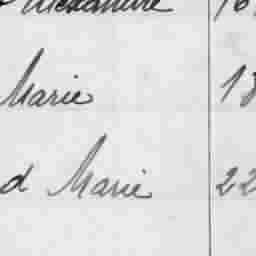 Alexandre 16
Marie 18
d Marie 22